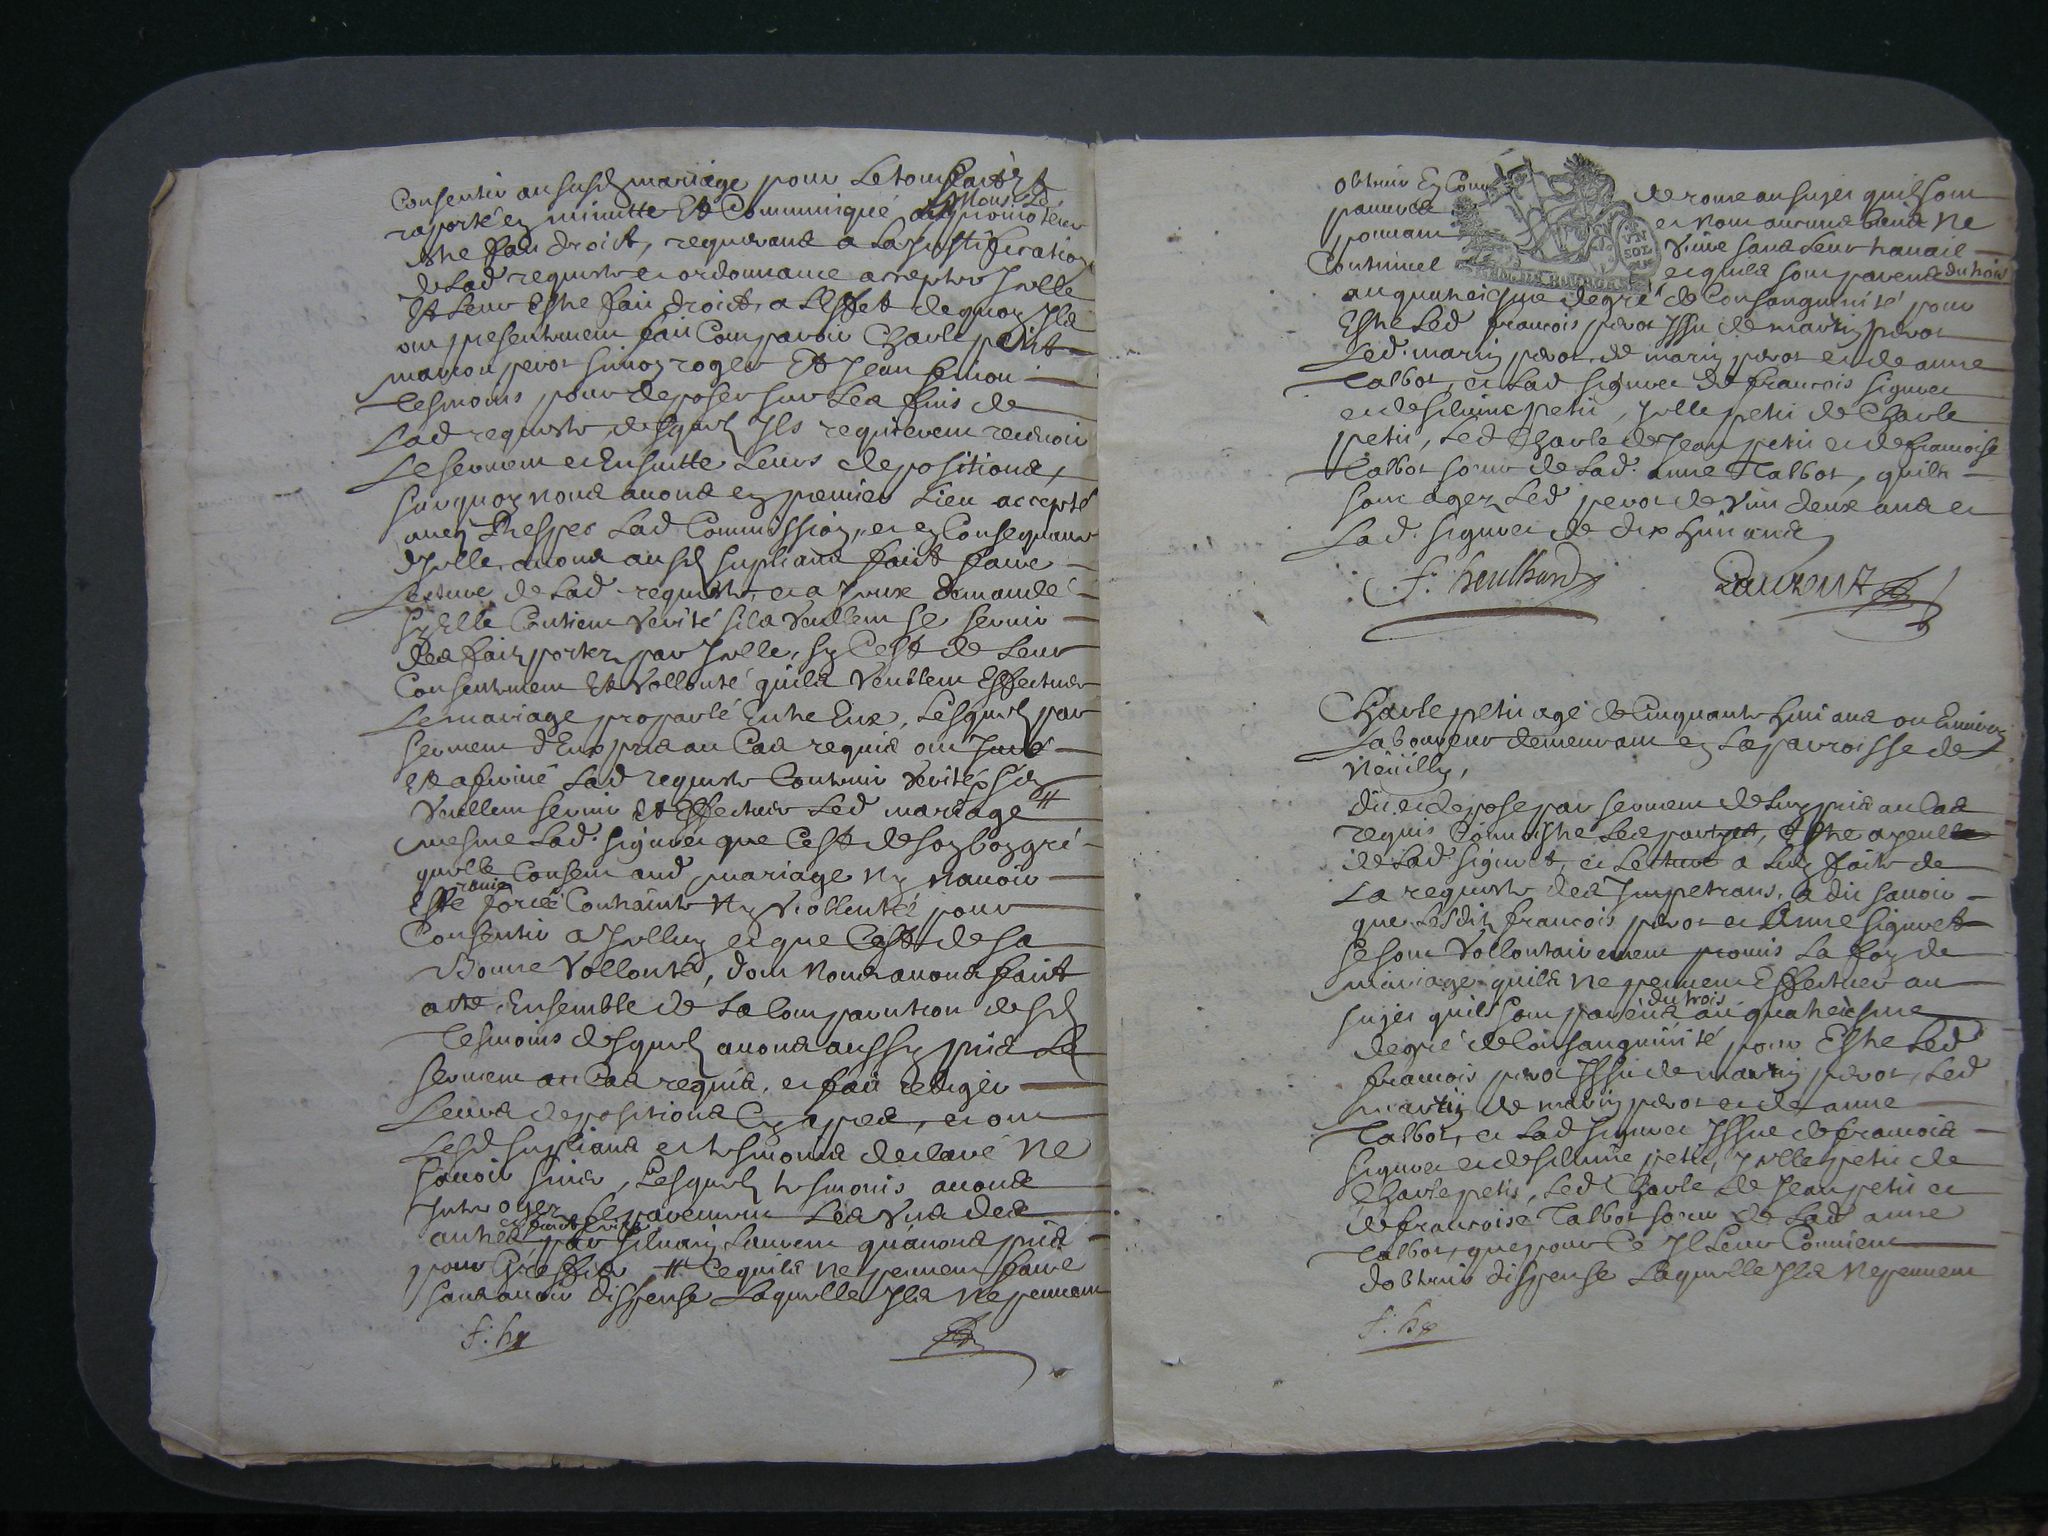 Consentir aususd mariage pour Letout faict &
raporté en minutte Et Communiqué aud promoteur
Nous Ld
estre fait droict, requerans a La Justification
de Lad requeste et ordonnance accepter Jcelle
Et Leur Estre fait droict, a Leffet de quoy Jls
ont presentement fait Comparoir Charle petit
perot simon roger Et Jean simon
Tesmoins pour deposer sur Les fins de
Lad requeste, desquels Jls requierent recevoir
Le serment et Ensuitte Leurs depositions,
surquoy nous avons en premier Lieu accepté
avec Respec Lad Commission, et en Consequence
dJcelle, avons ausd supliants faict faire
Lecture de Lad requeste, et a Jceux demandé
sy Elle Contient Verité sils Veullent se servir
des faits portez par Jcelle, sy Cest de Leur
Consentement Et Vollonté quils Veullent Effectuer
Le mariage proparlé Entre Eux, Lesquels par
serment dEux pris au Cas requis ont Juré
et afirmé Lad requeste Contenir Verité sen
Veullent servir et Effectuer Led mariage #
mesme Lad. signoret que Cest de son bon gré
quelle Consent aud mariage Ny navoir
Esté forcé Contrainte Ny Viollentéé pour
Consentir a Jcelluy et que Cest de sa
Bonne Vollonté, dont Nous avons faict
acte, Ensemble de La Comparution desd
Tesmoins desquels avons aussy pris Le
serment au Cas requis, et fait rediger
Leurs depositions Cy apres, et ont
Lesd supliants et tesmoins declaré Ne
scavoir signer, Lesquels tesmoins avons
Jnterogez separement Les Uns des
autres par silvain Laurent quavons pris
pour Greffier, # Cequils ne peuvent faire
sans avoir dispense Laquelle Jls Ne peuvent
f. h
obtenir En Cour de rome au sujet quils sont
pauvres et Nont aucuns biens Ne
pouvant Vivre sans Leur travail
Continuel et quils sont parens du trois
VN SOL
au quatriesme degré de Consanguinité pour
Estre Led francois perot Jssu de martin perot
Led. martin perot de marin perot et de anne
Talbot, et Lad signoret de francois signoret
et de silvine petit, Jcelle petit de Charle
petit, Led Charle de Jean petit et de francoise
Talbot sœur de Lad. anne Talbot, quils
sont agez Led perot de Vint deux ans et
Lad. signoret de dix huit ans
f. heulhard Laurent
Charle petit agé de Cinquante huit ans ou Environ
Laboureur demeurant en La parroisse de
Neüilly,
dit et depose par serment de Luy pris au Cas
requis Connoistre Les parties, Estre ayeul
de Lad. signoret, et Lecture a Luy faite de
La requeste des Jmpetrans, a dit scavoir
que Lesdits francois perot et Anne signoret
se sont Vollontairement promis La foy de
mariage quils ne peuvent Effectuer au
sujet quils sont parens du trois au quatriesme
degré de Consanguinité pour Estre Led
francois perot Jssu de martin perot, Led
martin de marin perot et de anne
Talbot, et Lad signoret Jssue de francois
signoret et de silvine petit, Jcelle petit de
Charle petit, Led Charle de Jean petit et
de francoise Talbot sœur de Lad anne
Talbot, que pour Ce Jl Leur Convient
dobtenir dispense Laquelle Jls Ne peuvent
f. h